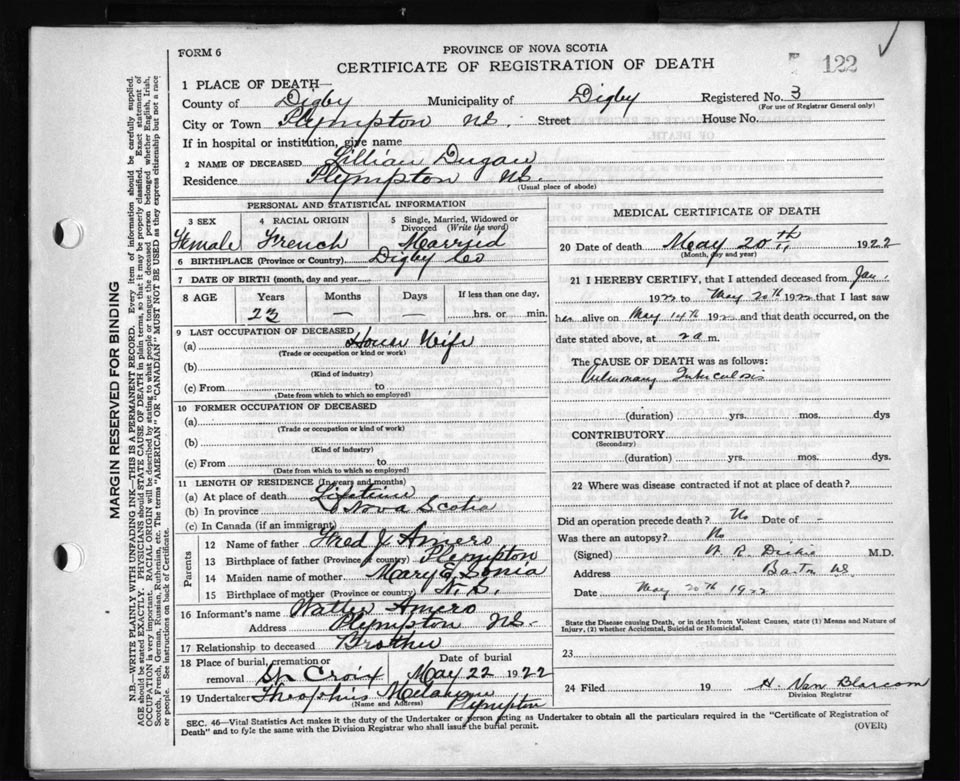 FORM 6
PROVINCE OF NOVA SCOTIA
CERTIFICATE OF REGISTRATION OF DEATH
122
1 PLACE OF DEATH—
County of Digby Municipality of Digby Registered No. 3
(For use of Registrar General only)
City or Town Plympton N.S. Street House No.
If in hospital or institution, give name
2 NAME OF DECEASED Lillian Dugau
Residence Plympton N.S.
(Usual place of abode)
PERSONAL AND STATISTICAL INFORMATION
3 SEX 4 RACIAL ORIGIN 5 Single, Married, Widowed or Divorced (Write the word)
Female French Married
6 BIRTHPLACE (Province or Country) Digby Co
7 DATE OF BIRTH (month, day and year)
8 AGE Years Months Days If less than one day,
23 — — hrs. or min.
9 LAST OCCUPATION OF DECEASED
(a) House Wife
(Trade or occupation or kind or work)
(b)
(Kind of industry)
(c) From to
(Date from which to which so employed)
10 FORMER OCCUPATION OF DECEASED
(a)
(Trade or occupation or kind of work)
(b)
(Kind of industry)
(c) From to
(Date from which to which so employed)
11 LENGTH OF RESIDENCE (In years and months)
(a) At place of death Lifetime
(b) In province Nova Scotia
(c) In Canada (if an immigrant)
Parents
12 Name of father Fred J Amero
13 Birthplace of father (Province or country) Plympton
14 Maiden name of mother Mary E. Sonia
15 Birthplace of mother (Province or country) N.S.
16 Informant's name Walter Amero
Address Plympton N.S.
17 Relationship to deceased Brother
18 Place of burial, cremation or removal St Croix Date of burial May 22 1922
19 Undertaker Theophius Plympton
(Name and Address)
MEDICAL CERTIFICATE OF DEATH
20 Date of death May 20th 1922
(Month, day and year)
21 I HEREBY CERTIFY, that I attended deceased from Jan.
1922 to May 20th 1922 that I last saw
her alive on May 14th 1922 and that death occurred, on
date stated above, at 2 a m.
The CAUSE OF DEATH was as follows:
Pulmonary Tuberculosis
(duration) yrs. mos. dys
CONTRIBUTORY
(Secondary)
(duration) yrs. mos. dys
22 Where was disease contracted if not at place of death?
Did an operation precede death? No Date of -
Was there an autopsy? No
(Signed) W. R. Dickie M.D.
Address Barton N.S.
Date May 20th 1922
State the Disease causing Death, or in death from Violent Causes, state (1) Means and Nature of
Injury, (2) whether Accidental, Suicidal or Homicidal.
23
24 Filed 19 H. Van Blarcom
Division Registrar
SEC. 46—Vital Statistics Act makes it the duty of the Undertaker or person acting as Undertaker to obtain all the particulars required in the "Certificate of Registration of
Death" and to fyle the same with the Division Registrar who shall issue the burial permit.
(OVER)
MARGIN RESERVED FOR BINDING
N.B.—WRITE PLAINLY WITH UNFADING INK—THIS IS A PERMANENT RECORD. Every item of information should be carefully supplied.
AGE should be stated EXACTLY. PHYSICIANS should STATE CAUSE OF DEATH in plain terms, so that it may be properly classified. Exact statement of
OCCUPATION is very important. RACIAL ORIGIN will be described by stating to what people or tongue the deceased person belonged whether English, Irish,
Scotch, French, German, Russian, Ruthenian, etc. The terms "AMERICAN" OR "CANADIAN" MUST NOT BE USED as they express citizenship but not a race
or people. See instructions on back of Certificate.